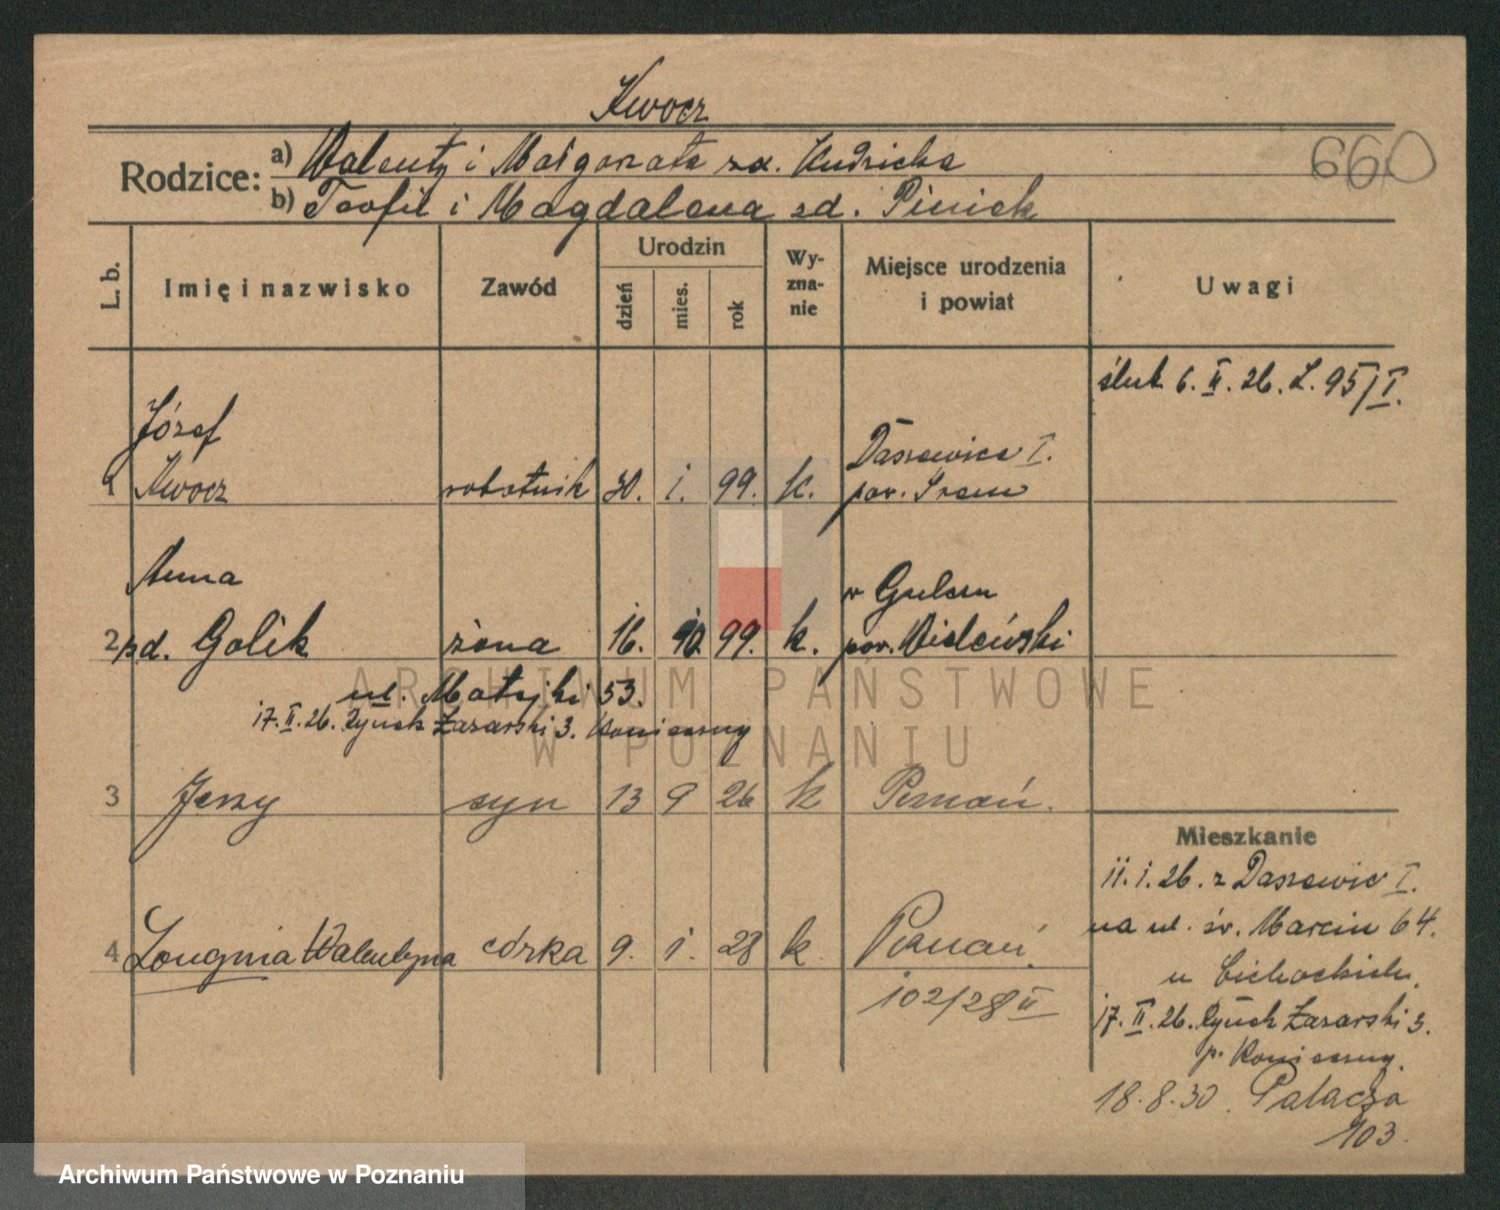 Kwocz
Rodzice: a) Walenty i Małgorzata zd. Kudzicka
b) Teofil i Magdalena zd.
660
L. b.
Imię i nazwisko
Zawód
Urodzin
dzień
mies.
rok
Wy-
zna-
nie
Miejsce urodzenia
i powiat
Uwagi
ślub 6. II. 26. L. 95/I.
Józef
1 Kwocz robotnik 30. i. 99. k.
Daszewice I.
pow. Śrem
Anna
2 zd. Golik żona 16. 10. 99. k.
pow. Wieluński
ul. Matejki 53.
17. II. 26. Rynek Łazarski 3. Konieczny
3 Jerzy syn 13 9 26 k Poznań.
Mieszkanie
11. i. 26. z Daszewic I.
na ul. św. Marcin 64.
u Cichockich.
17. II. 26. Rynek Łazarski 3.
p. Konieczny.
18.8.30. Palacza
103.
4 Walentyna córka 9. i. 28 k. Poznań.
102/28 II
ARCHIWUM PAŃSTWOWE
W POZNANIU
Archiwum Państwowe w Poznaniu